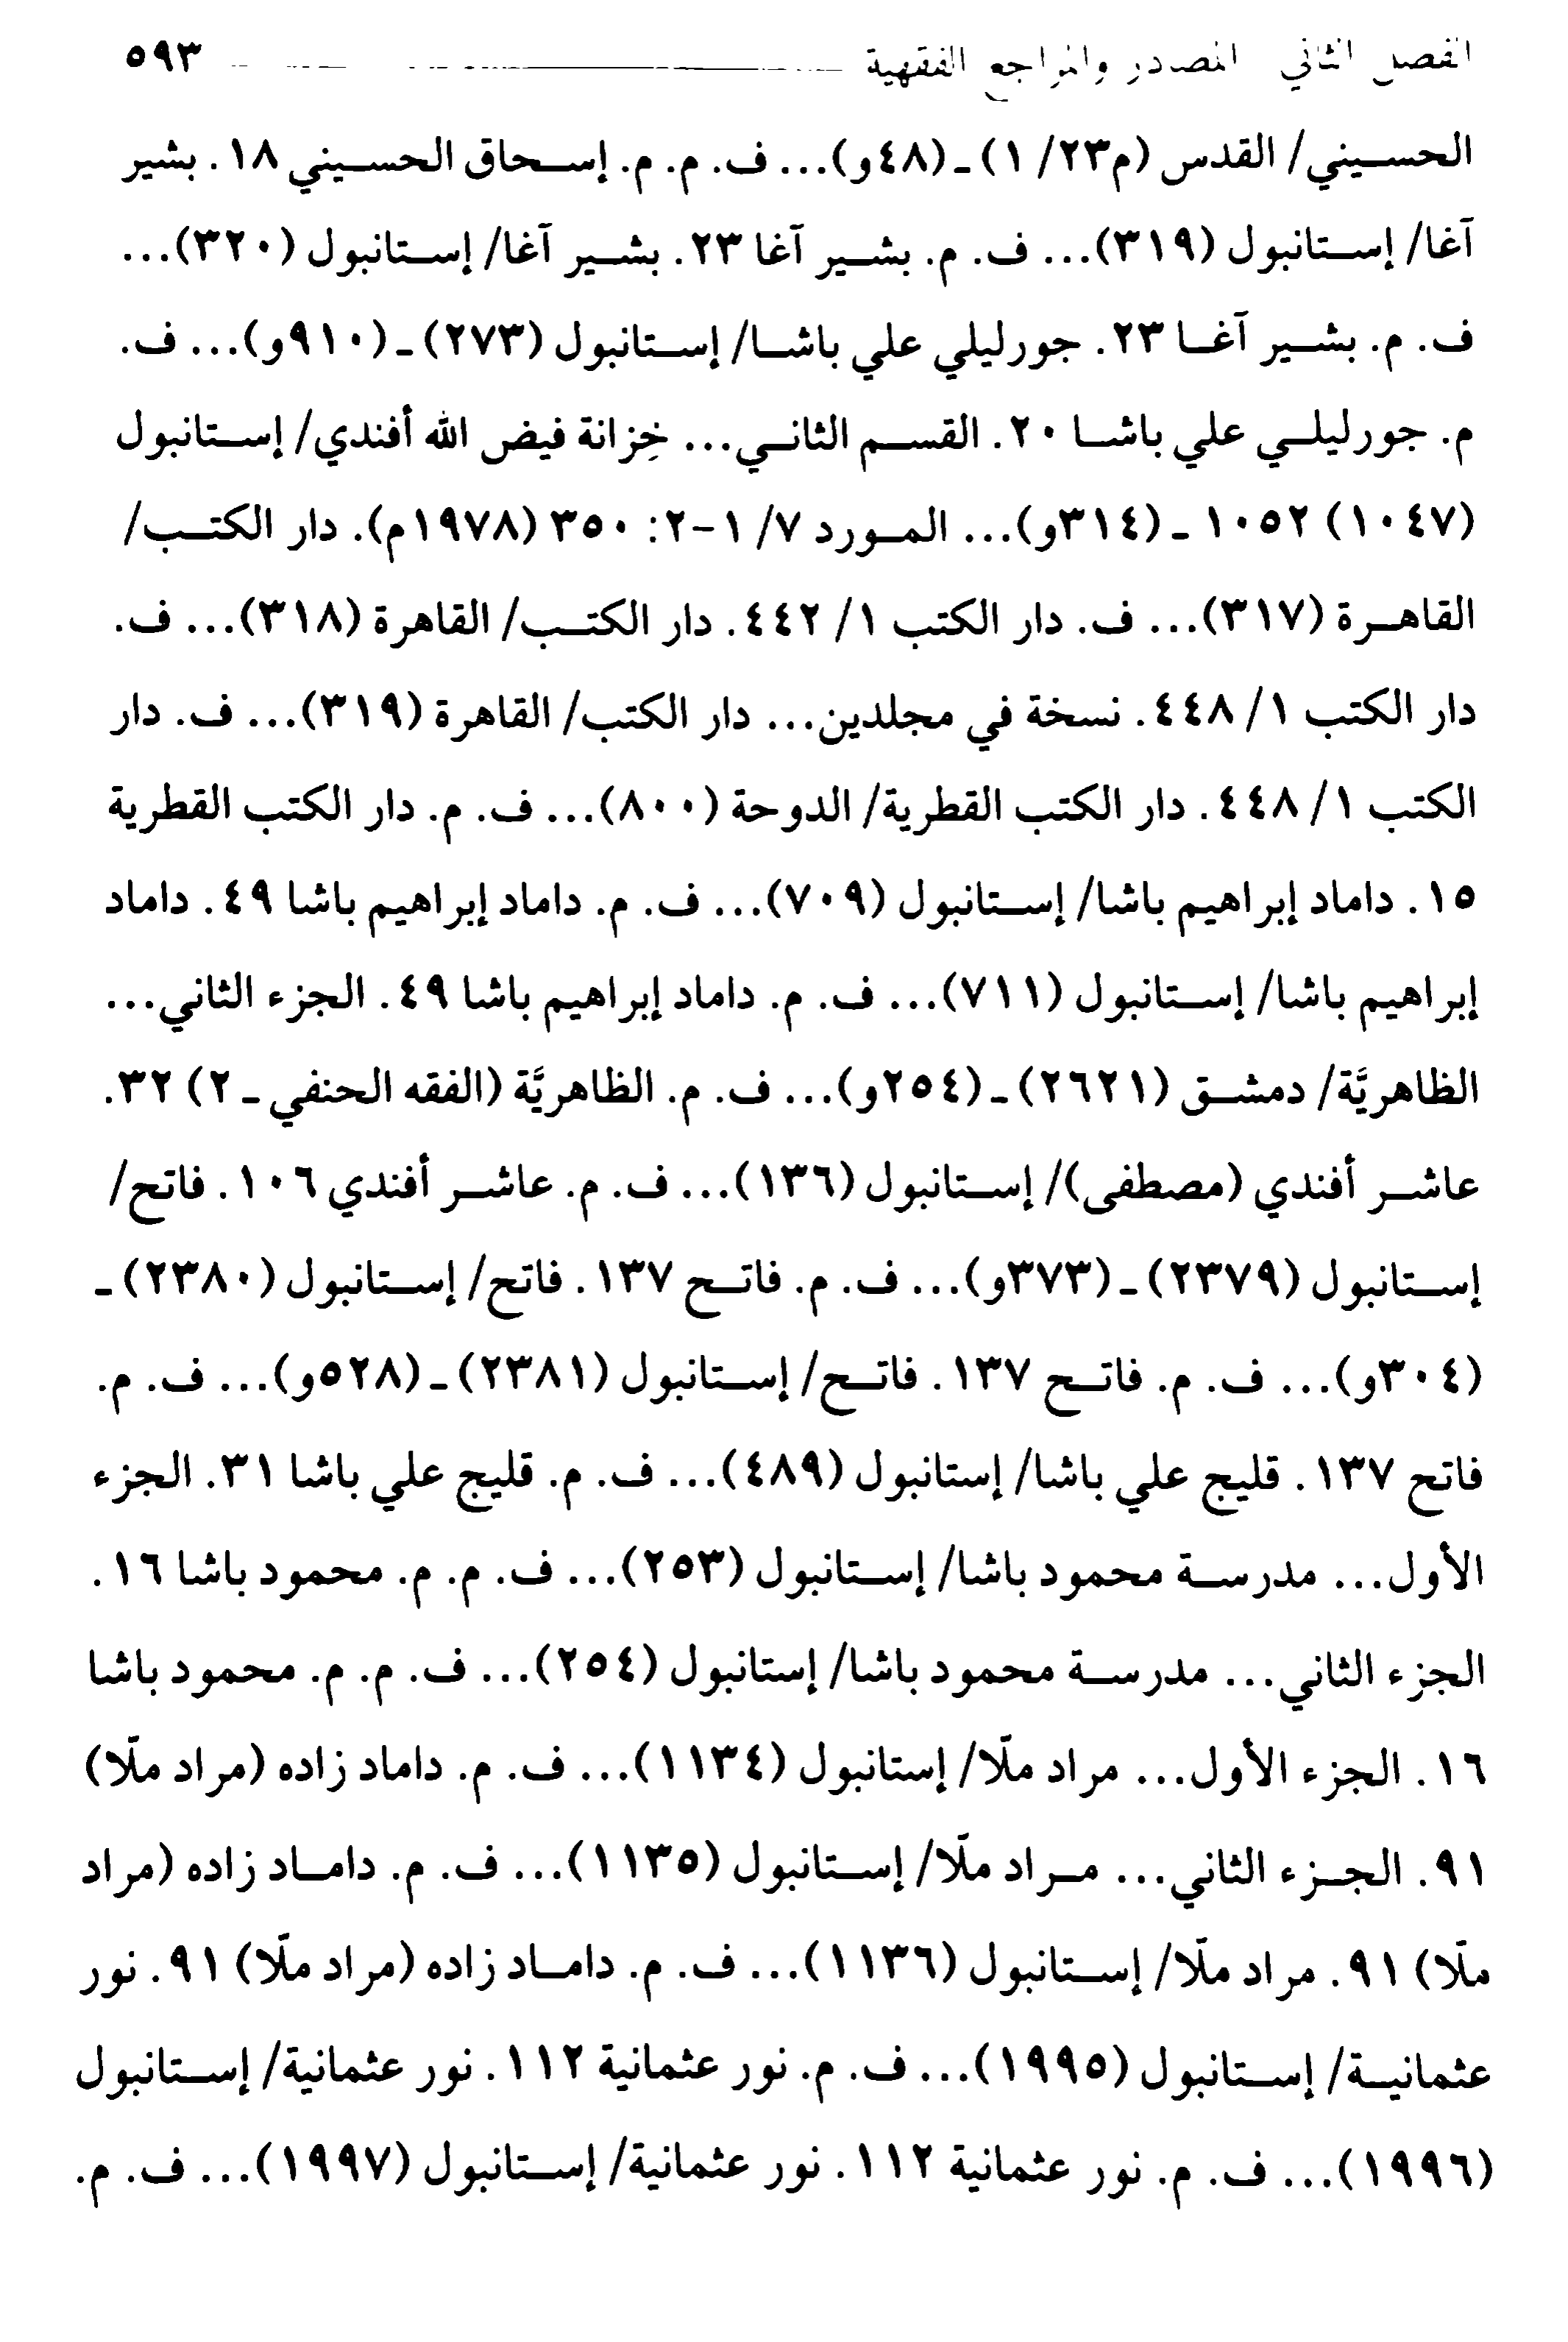 الفصل الثاني المصادر والمراجع الفقهية ٥٩٣
الحسيني/ القدس (م٢٣/ ١) ـ (٤٨و)... ف. م. م. إسحاق الحسيني ١٨. بشير
آغا/ إستانبول (٣١٩)... ف. م. بشير آغا ٢٣. بشير آغا/ إستانبول (٣٢٠)...
ف. م. بشير آغا ٢٣. جورليلي علي باشا/ إستانبول (٢٧٣) ـ (٩١٠و)... ف.
م. جورليلي علي باشا ٢٠. القسم الثاني... خِزانة فيض الله أفندي/ إستانبول
(١٠٤٧) ١٠٥٢ ـ (٣١٤و)... المورد ٧/ ١-٢: ٣٥٠ (١٩٧٨م). دار الكتب/
القاهرة (٣١٧)... ف. دار الكتب ١/ ٤٤٢. دار الكتب/ القاهرة (٣١٨)... ف.
دار الكتب ١/ ٤٤٨. نسخة في مجلدين... دار الكتب/ القاهرة (٣١٩)... ف. دار
الكتب ١/ ٤٤٨. دار الكتب القطرية/ الدوحة (٨٠٠)... ف. م. دار الكتب القطرية
١٥. داماد إبراهيم باشا/ إستانبول (٧٠٩)... ف. م. داماد إبراهيم باشا ٤٩. داماد
إبراهيم باشا/ إستانبول (٧١١)... ف. م. داماد إبراهيم باشا ٤٩. الجزء الثاني...
الظاهريَّة/ دمشق (٢٦٢١) ـ (٢٥٤و)... ف. م. الظاهريَّة (الفقه الحنفي ـ ٢) ٣٢.
عاشر أفندي (مصطفى)/ إستانبول (١٣٦)... ف. م. عاشر أفندي ١٠٦. فاتح/
إستانبول (٢٣٧٩) ـ (٣٧٣و)... ف. م. فاتح ١٣٧. فاتح/ إستانبول (٢٣٨٠) ـ
(٣٠٤و)... ف. م. فاتح ١٣٧. فاتح/ إستانبول (٢٣٨١) ـ (٥٢٨و)... ف. م.
فاتح ١٣٧. قليج علي باشا/ إستانبول (٤٨٩)... ف. م. قليج علي باشا ٣١. الجزء
الأول... مدرسة محمود باشا/ إستانبول (٢٥٣)... ف. م. م. محمود باشا ١٦.
الجزء الثاني... مدرسة محمود باشا/ إستانبول (٢٥٤)... ف. م. م. محمود باشا
١٦. الجزء الأول... مراد ملّا/ إستانبول (١١٣٤)... ف. م. داماد زاده (مراد ملّا)
٩١. الجزء الثاني... مراد ملّا/ إستانبول (١١٣٥)... ف. م. داماد زاده (مراد
ملّا) ٩١. مراد ملّا/ إستانبول (١١٣٦)... ف. م. داماد زاده (مراد ملّا) ٩١. نور
عثمانية/ إستانبول (١٩٩٥)... ف. م. نور عثمانية ١١٢. نور عثمانية/ إستانبول
(١٩٩٦)... ف. م. نور عثمانية ١١٢. نور عثمانية/ إستانبول (١٩٩٧)... ف. م.